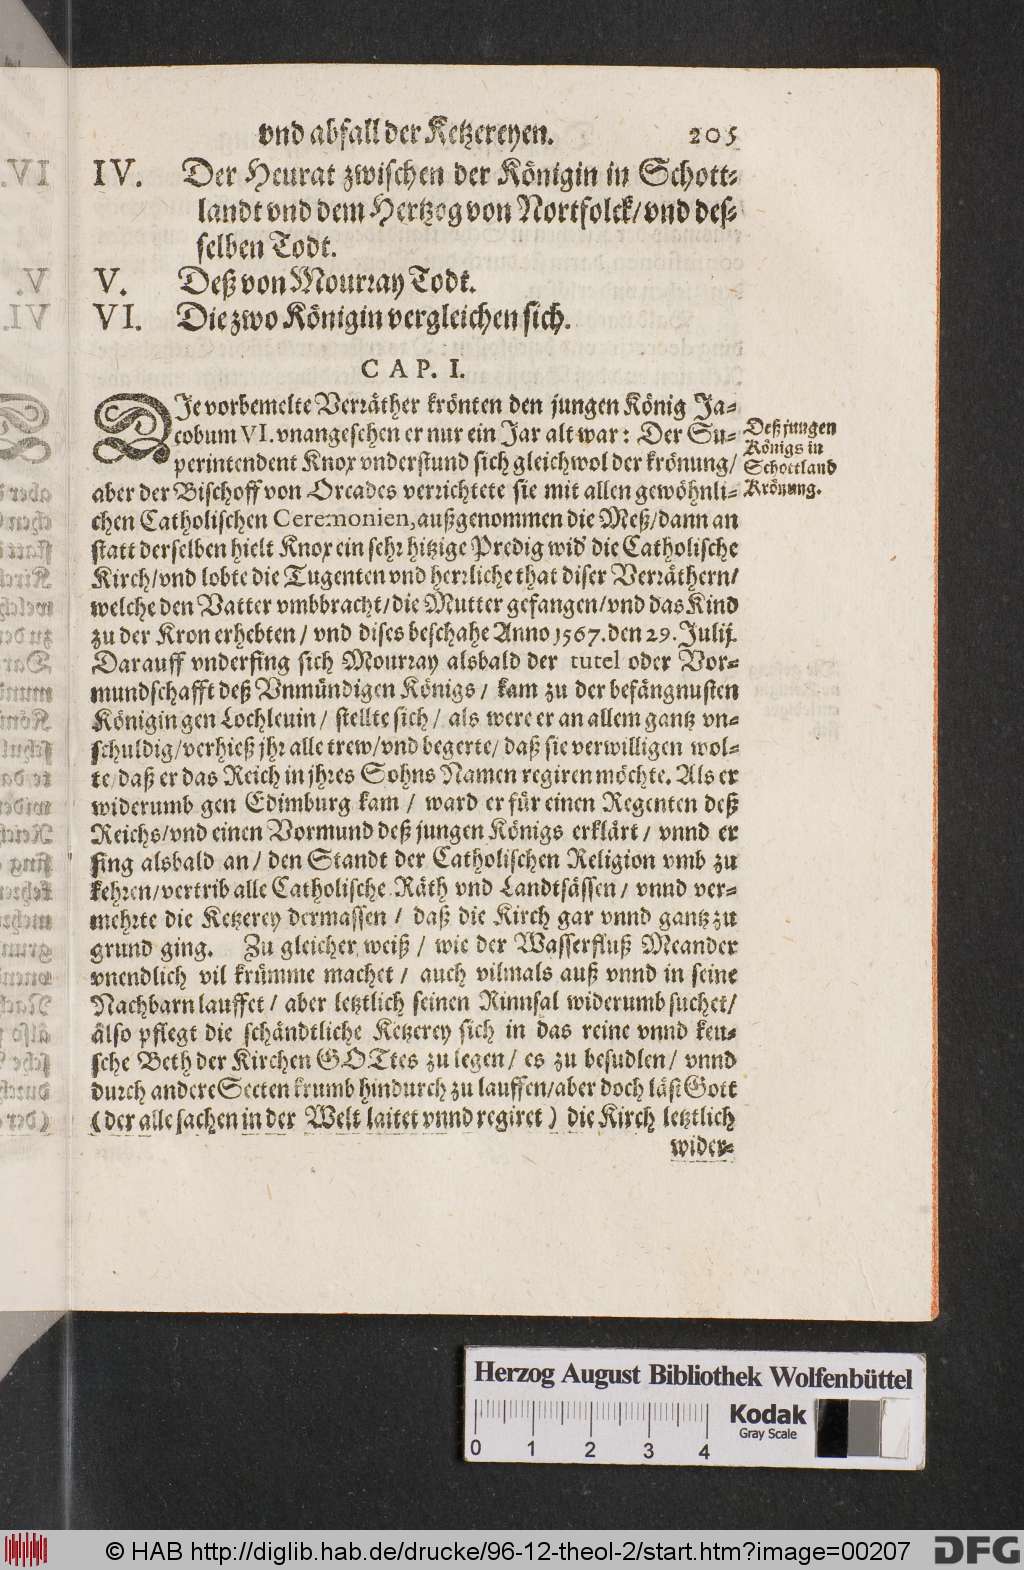 vnd abfall der Ketzereyen. 205
IV. Der Heurat zwischen der Königin in Schott-
landt vnd dem Hertzog von Nortfolck/vnd des-
selben Todt.
V. Deß von Mourray Todt.
VI. Die zwo Königin vergleichen sich.
CAP. I.
DIe vorbemelte Verräther krönten den jungen König Ja-
cobum VI. vnangesehen er nur ein Jar alt war: Der Su-
perintendent Knox vnderstund sich gleichwol der krönung/
aber der Bischoff von Orcades verrichtete sie mit allen gewöhnli-
chen Catholischen Ceremonien, außgenommen die Meß/dann an
statt derselben hielt Knox ein sehr hitzige Predig wid' die Catholische
Kirch/vnd lobte die Tugenten vnd herrliche that diser Verräthern/
welche den Vatter vmbbracht/die Mutter gefangen/vnd das Kind
zu der Kron erhebten/ vnd dises beschahe Anno 1567. den 29. Julij.
Darauff vnderfing sich Mourray alsbald der tutel oder Vor-
mundschafft deß Vnmündigen Königs/ kam zu der befängnusten
Königin gen Lochleuin/ stellte sich/ als were er an allem gantz vn-
schuldig/verhieß jhr alle trew/vnd begerte/ daß sie verwilligen wol-
te/daß er das Reich in jhres Sohns Namen regiren möchte. Als er
widerumb gen Edimburg kam/ ward er für einen Regenten deß
Reichs/vnd einen Vormund deß jungen Königs erklärt/ vnnd er
fing alsbald an/ den Standt der Catholischen Religion vmb zu
kehren/vertrib alle Catholische Räth vnd Landtsässen/ vnnd ver-
mehrte die Ketzerey dermassen/ daß die Kirch gar vnnd gantz zu
grund ging. Zu gleicher weiß/ wie der Wasserfluß Meander
vnendlich vil krümme machet/ auch vilmals auß vnnd in seine
Nachbarn lauffet/ aber letztlich seinen Rinnsal widerumb suchet/
also pflegt die schändtliche Ketzerey sich in das reine vnnd keu-
sche Beth der Kirchen GOTtes zu legen/ es zu besudlen/ vnnd
durch andere Secten krumb hindurch zu lauffen/aber doch läst Gott
(der alle sachen in der Welt laitet vnnd regiret) die Kirch letztlich
wider-
Deß jungen
Königs in
Schottland
Krönung.
Herzog August Bibliothek Wolfenbüttel
Kodak
Gray Scale
0 1 2 3 4
© HAB http://diglib.hab.de/drucke/96-12-theol-2/start.htm?image=00207
DFG